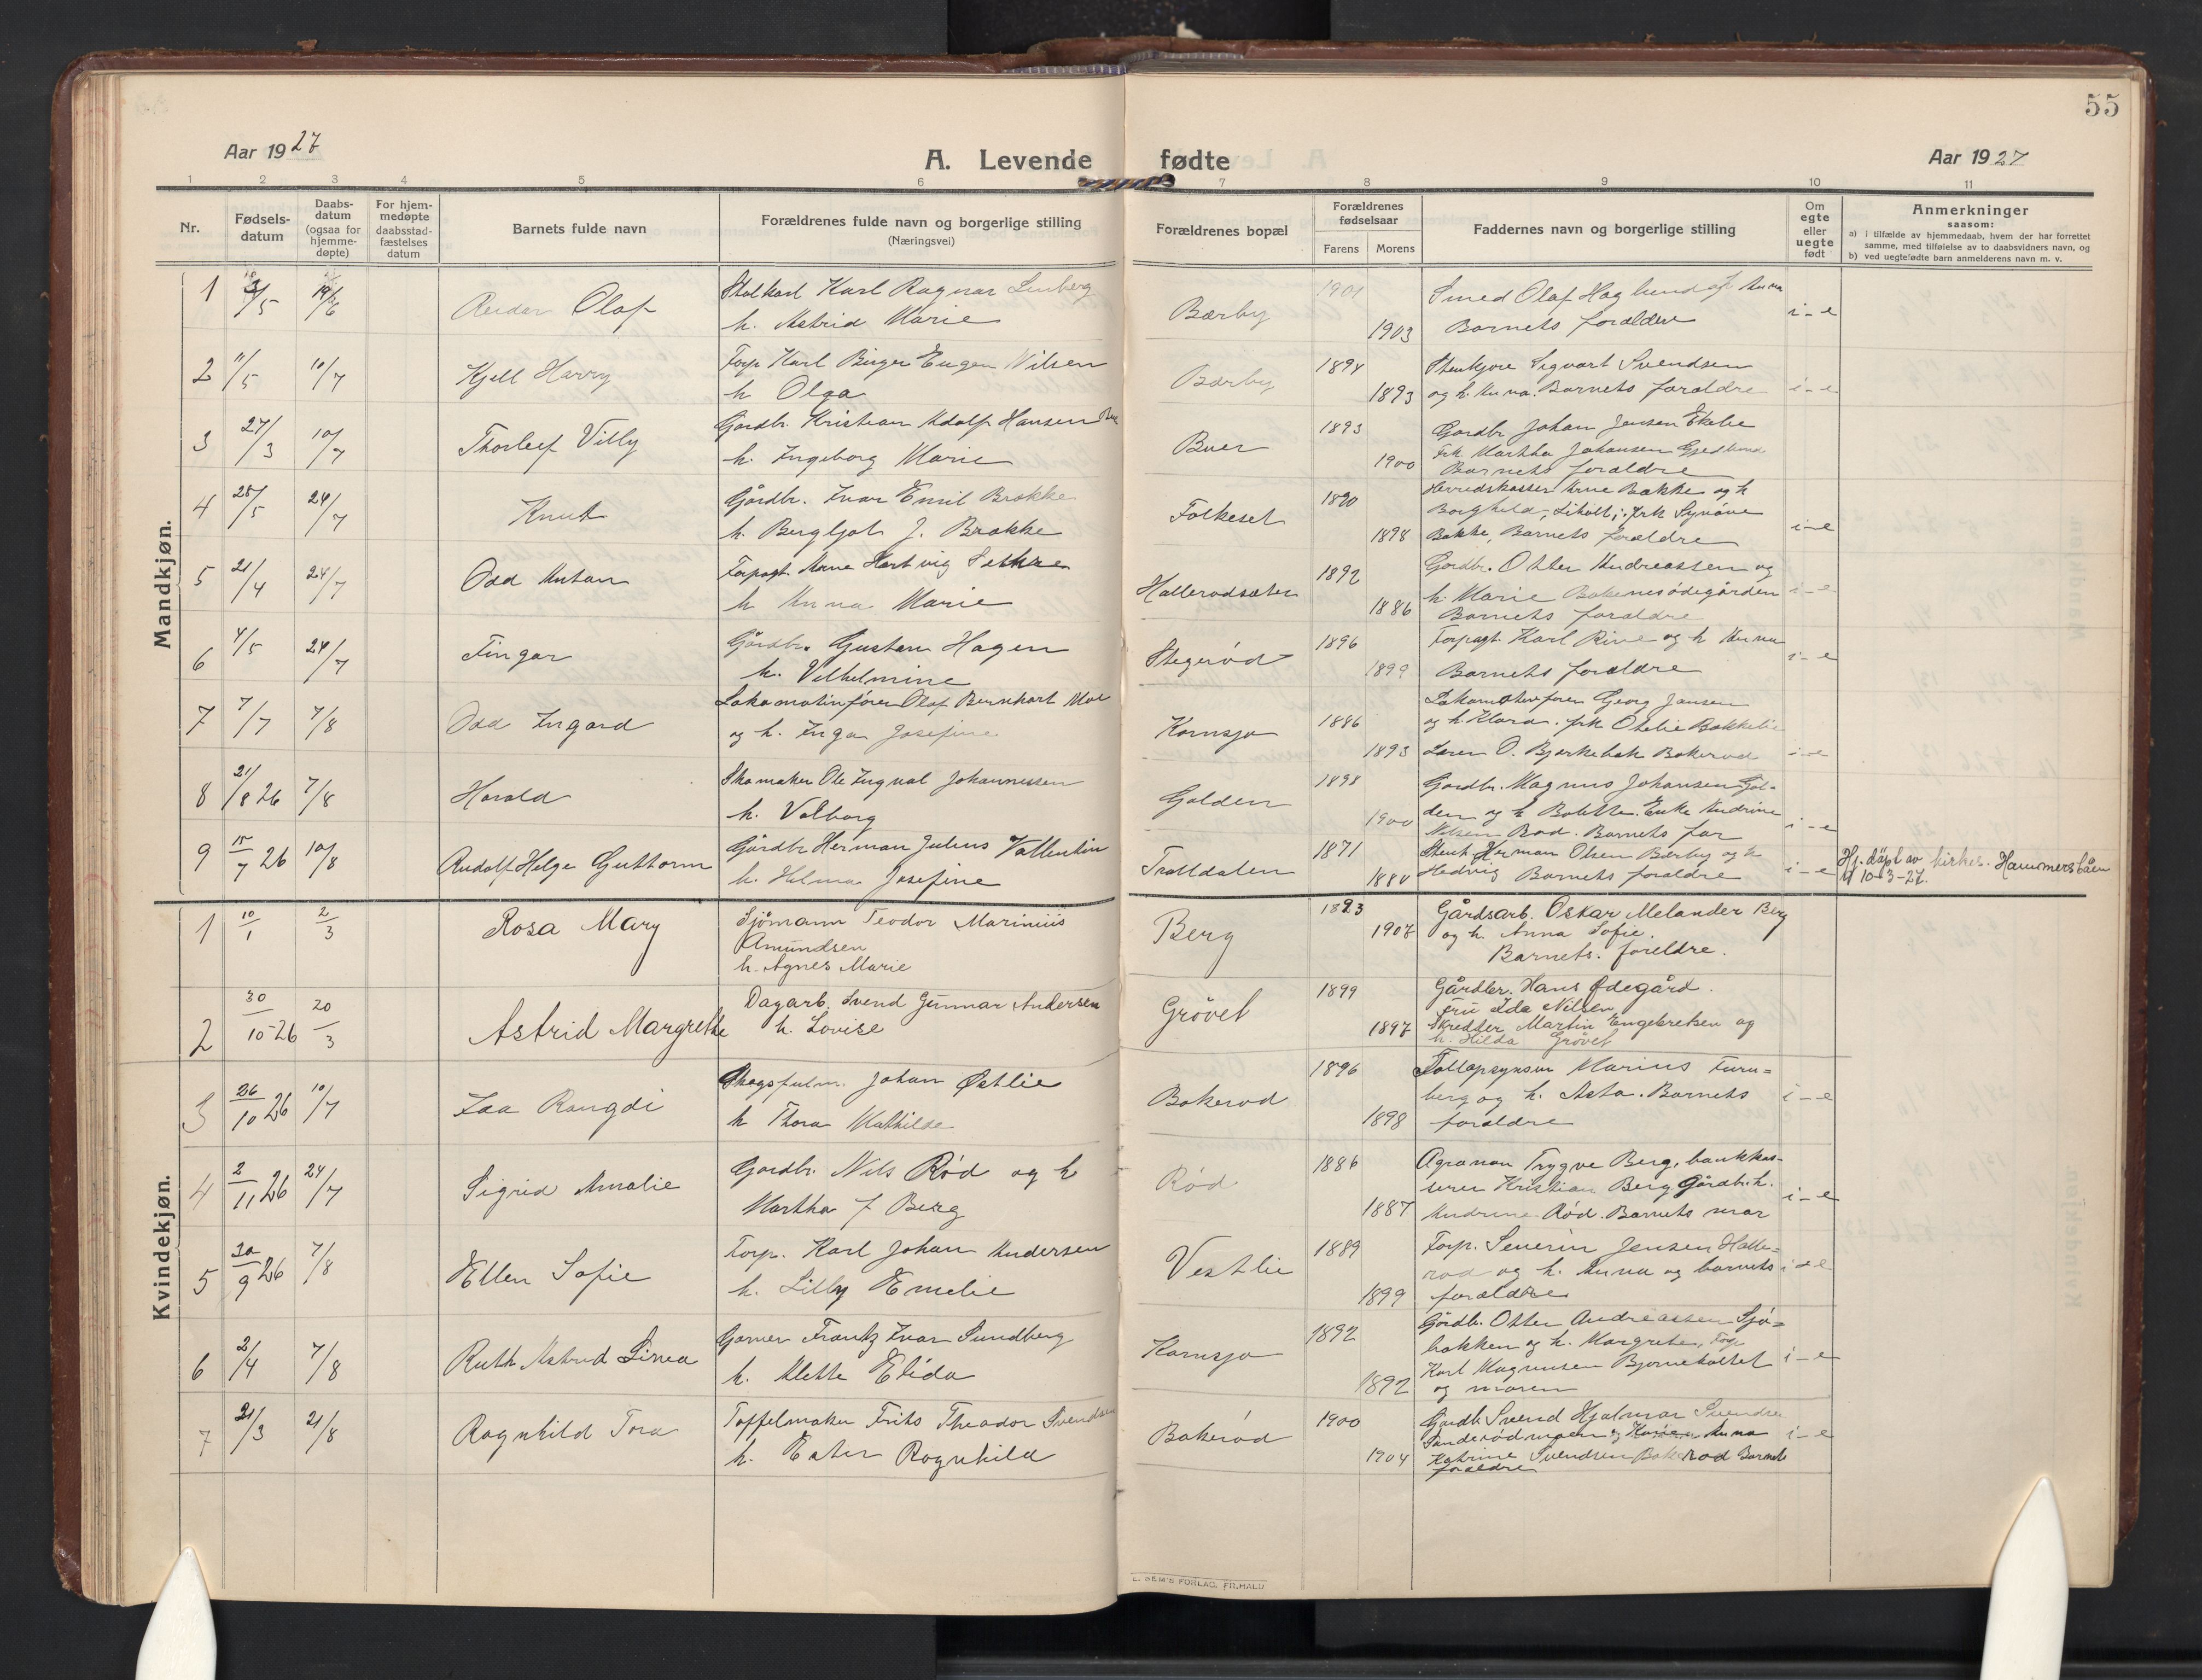 55
Aar 1927
A. Levende fødte
Aar 1927
1 2 3 4 5 6 7 8 9 10 11
Nr.
Fødsels-
datum
Daabs-
datum
(ogsaa for
hjemme-
døpte)
For hjem-
medøpte
daabsstad-
fæstelses
datum
Barnets fulde navn
Forældrenes fulde navn og borgerlige stilling
(Næringsvei)
Forældrenes bopæl
Forældrenes
fødselsaar
Farens Morens
Faddernes navn og borgerlige stilling
Om
egte
eller
uegte
født
Anmerkninger
saasom:
a) i tilfælde av hjemmedaab, hvem der har forrettet
samme, med tilføielse av to daabsvidners navn, og
b) ved uegtefødte barn anmelderens navn m. v.
Mandkjøn.
1 /5 19/6 Reidar Olaf
Karl Ragnar Linberg
h. Astrid Marie
Bærby 1901 1903
Smed Olaf Haglund og Anna
Barnets forældre i-e
2 11/5 10/7 Kjell Harry
Forp Karl Birger Eugen Nilsen
h Olga
Bærby 1894 1893
Sigvart Svendsen
og h. Anna. Barnets forældre i-e
3 27/3 10/7 Thorleif Villy
Gårdbr. Kristian Adolf Hansen
h. Ingeborg Marie
Buer 1893 1900
Gårdbr Johan Jensen Ekebe
Frk Martha Johansen
Barnets forældre
4 28/5 24/7 Knut
Gårdbr. Ivar Emil Brække
h. Bergljot J. Brække
Folkeset 1890 1898
Herredskasser Arne Bakke og h
Borghild, frk Synöve
Bakke, Barnets forældre i-e
5 21/4 24/7 Odd Anton
Forpagt. Arne Hartvig
h Anna Marie
Hallerødsæter 1892 1886
Gårdbr. Otter Andreassen og
h. Marie Bakenesødegården
Barnets forældre i-e
6 4/5 24/7 Fingar
Gårdbr. Gustav Hagen
h. Vilhelmine
Stegerød 1896 1899
Forpagt. Karl Rive og h Anna
Barnets forældre i-e
7 7/7 7/8 Odd Ingard
Lokomotivfører Olaf Bernhart Moe
og h. Inga Josefine
Kornsjø 1886 1893
Lokomotivføren Georg Jansen
og h. Klara. frk Otelie Bakkelie
O. Bjørkebæk Bakerød i-e
8 21/8 26 7/8 Harald
Skomaker Ole Ingval Johannessen
h. Valborg
Golden 1898 1900
Gårdbr. Magnus Johansen Gol-
den og h Bolette. Enke Andrine
Nilsen Brød. Barnets far i-e
9 15/7 26 10/8 Rudolf Helge Guttorm
Gårdbr Herman Julius Vallentin
h. Hilma Josefine
Tralldalen 1871 1880
Herman Olsen Bærby og h
Hedvig Barnets forældre i-e
Hj. døpt av kirkes. Hammersbåen
10-3-27.
Kvindekjøn.
1 10/1 2/3 Rosa Mary
Sjømann Teodor Mariniüs
Amündsen
h. Agnes Marie
Berg 1893 1907
Gårdsarb. Oskar Melander Berg
og h. Anna Sofie.
Barnets. foreldre.
2 30/10-26 20/3 Astrid Margrethe
Dagarb. Svend Günnar Andersen
h. Lovise
Grövel 1899 1897
Gårdbr. Hans Ødegård.
frü Ida Nilsen
Skredder Martin Engebretsen og
h. Hilda Grövel
3 26/10 26 10/7 Ida Rangdi
Skogsfulm. Johan Østlie
h Thora Mathilde
Bakerød 1896 1898
Marius Furu=
berg og h. Asta. Barnets
forældre i-e
4 2/11 26 24/7 Sigrid Amalie
Gårdbr. Nils Rød og h
Martha f Berg
Rød 1886 1887
Agronom Trygve Berg, bankkas-
serer Kristian Berg Gårdb. h.
Andrine Rød. Barnets mor i-e
5 30/9 26 7/8 Ellen Sofie
Forp. Karl Johan Andersen
h. Lilly Emelie
Vestlie 1889 1899
Forp. Severin Jensen Halle=
rød og h. Anna og barnets
forældre i-e
6 2/4 7/8 Ruth Astrid Linea
Garver Frantz Ivar Sundberg
h. Alette Elida
Kornsjø 1892 1892
Gårdb. Otter Andreassen Sjö=
bakken og h. Margrete, Forp
Karl Magnusen Bjørneholtet
og moren i-e
7 21/3 21/8 Ragnhild Tora
Tøffelmaker Frits Theodor Svendsen
h. Ester Ragnhild
Bakerød 1900 1904
Gårdb Svend Hjalmar Svendsen
og Anna
Katrine Svendsen Bakerød Barnets
forældre i-e
E. SEM'S FORLAG, FR.HALD